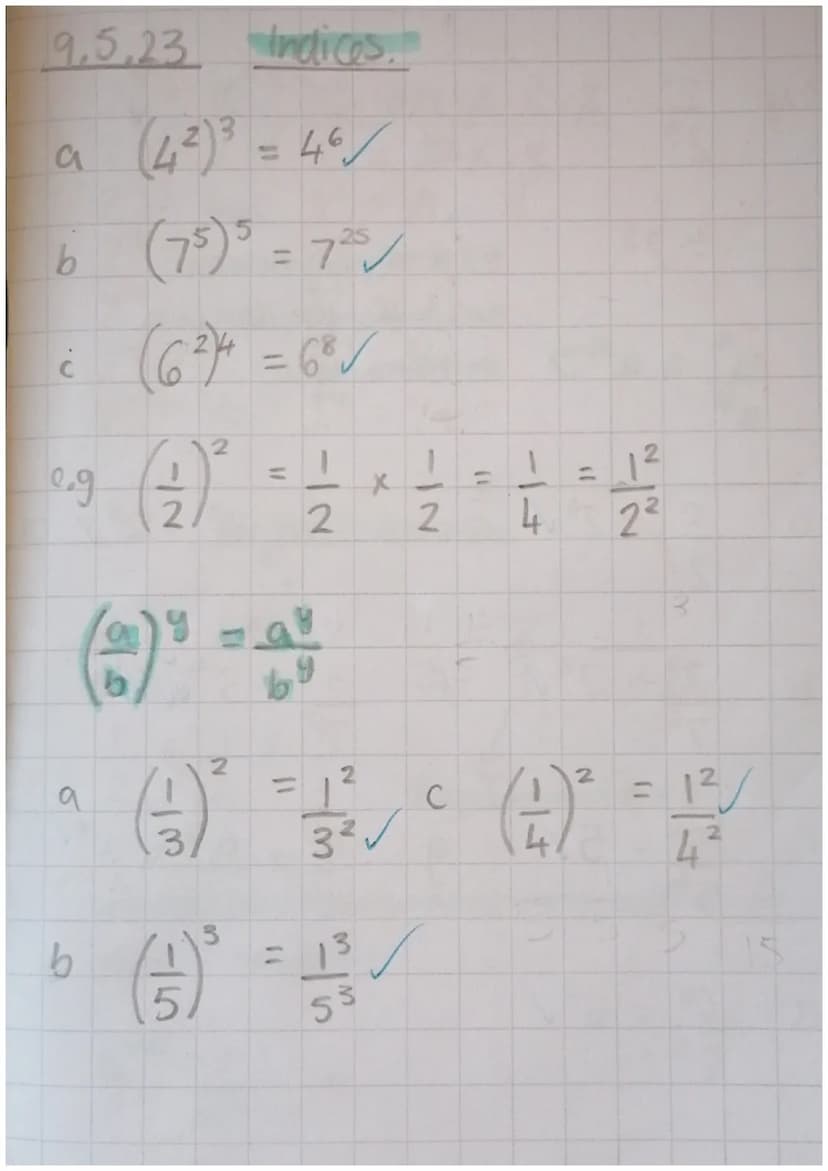 9.5.23 Indices.
a (4²)³ = 4⁶ ✓
b (7⁵)⁵ = 7²⁵ ✓
c (6²)⁴ = 6⁸ ✓
e.g (1/2)² = 1/2 × 1/2 = 1/4 = 1²/2²
(a/b)ʸ = aʸ/bʸ
a (1/3)² = 1²/3² ✓ c (1/4)² = 1²/4² ✓
b (1/5)³ = 1³/5³ ✓